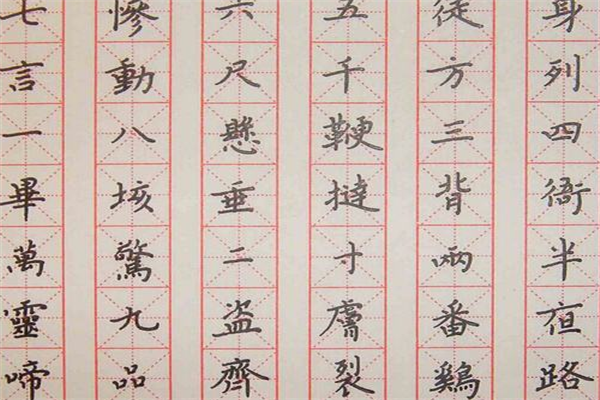 身列四衙半亱路
徒方三背兩番鷄
五千鞭撻寸膚裂
六尺懸垂二盜齊
慘動八垓驚九品
七言一畢萬靈啼